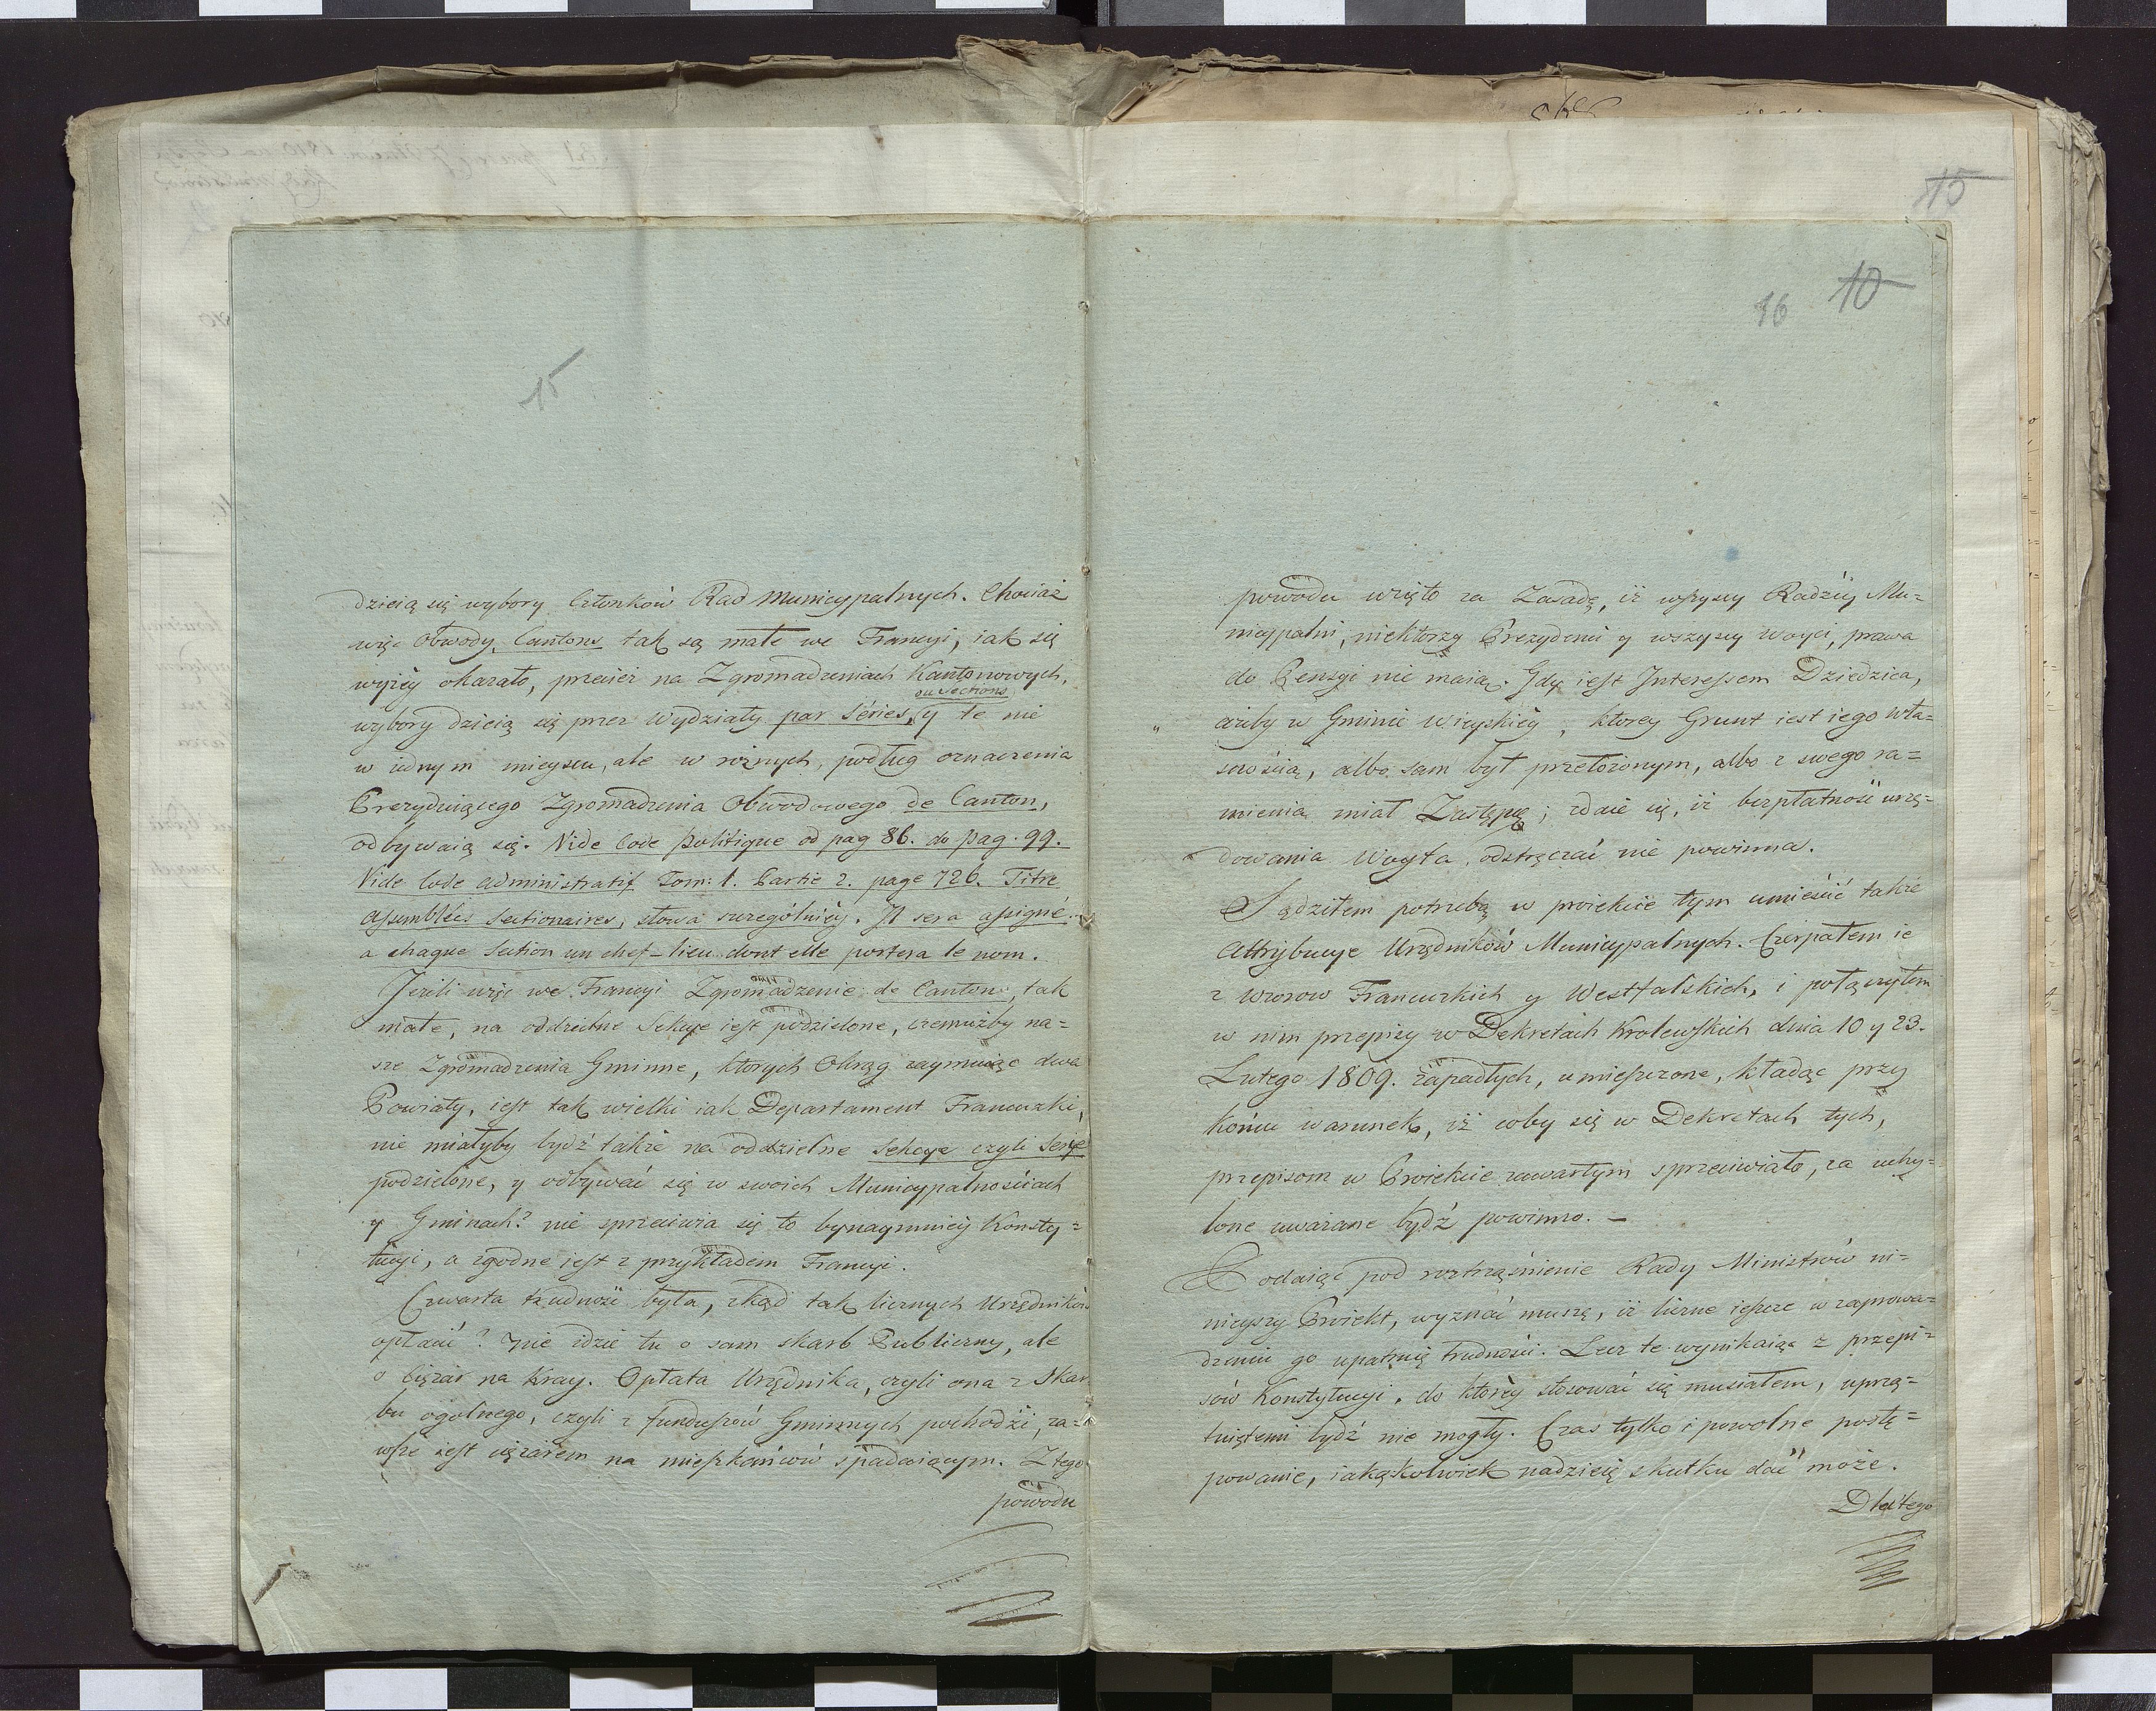 15
dzieią się wybory Członków Rad Municypalnych. Chociaż
więc Obwody, Cantons tak są małe we Francyi, iak się
wyżéy okazało, przecież na Zgromadzeniach Kantonowych,
ou Sections
wybory dzieią się przez Wydziały par Séries, y te nie
w iednym mieyscu, ale w różnych, podług oznaczenia
Prezyduiącego Zgromadzenia Obwodowego de Canton,
odbywaią się. Vide Code politique od pag 86. do pag. 99.
Vide Code administratif Tom: 1. Partie 2. page 726. Titre
Assemblées Sectionaires, słowa szczególniéy. Il sera assigné
a chaque Section un chef-lieu dont elle portera le nom.
Jeżeli więc we Francyi Zgromadzenie de Canton, tak
małe, na oddzielne Sekcye iest podzielone, czemużby na=
sze Zgromadzenia Gminne, ktorych Okrąg zaymuiąc dwa
Powiaty, iest tak wielki iak Departament Francuzki,
nie miałyby bydź także na oddzielne Sekcye czyli Serye
podzielone, y odbywać się w swoich Municypalnościach
y Gminach? nie sprzeciwia się to bynaymniéy Konsty=
tucyi, a zgodne iest z przykładem Francyi.
Czwarta trudność była, zkąd tak licznych Urzędników
opłacić? nie idzie tu o sam skarb Publiczny, ale
o Ciężar na Kray. Opłata Urzędnika, czyli ona z Skar
bu ogolnego, czyli z funduszów Gminnych pochodzi, za=
wsze iest ciężarem na mieszkańców spadaiącym. Z tego
powodu
15
16 10
powodu wzięto za Zasadę, iż wszyscy Radźcy Mu=
nicypalni, niektorzy Prezydenci y wszyscy Woyci, prawa
do Pensyi nie maią. Gdy iest Interessem Dziedzica,
ażeby w Gminie Wieyskiéy, ktorey Grunt iest iego wła=
snością, albo sam był przełożonym, albo z swego ra=
mienia miał Zastępcę; zdaie się, iż bezpłatność urzę=
dowania Woyta, odstręczać nie powinna.
Sądziłem potrzebą w proiekcie tym umieścić także
Attrybucye Urzędników Municypalnych. Czerpałem ie
z wzorow Francuzkich y Westfalskich, i połączyłem
w nim przepisy w Dekretach Krolewskich dnia 10 y 23.
Lutego 1809. zapadłych, umieszczone, kładąc przy
końcu warunek, iż coby się w Dekretach tych,
przepisom w Proiekcie zawartym sprzeciwiało, za uchy=
lone uważane bydź powinno. —
Podaiąc pod roztrząśnienie Rady Ministrów ni=
nieyszy Proiekt, wyznać muszę, iż liczne ieszcze w zaprowa=
dzeniu go upatruię trudności. Lecz te wynikaiąc z przepi=
sów Konstytucyi, do któréy stosować się musiałem, uprzą=
tnięteni bydź nie mogły. Czas tylko i powolne postę=
powanie, iakąkolwiek nadzieię skutku dać może.
Dlatego